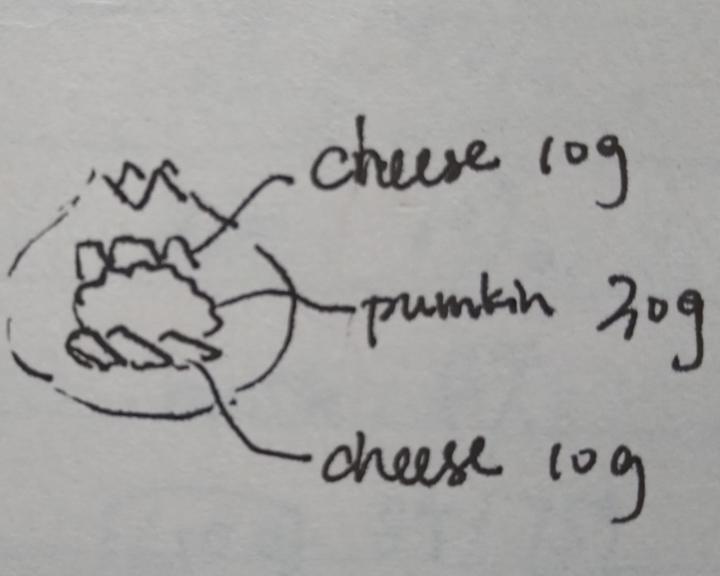 cheese 10g
pumkin 30g
cheese 10g